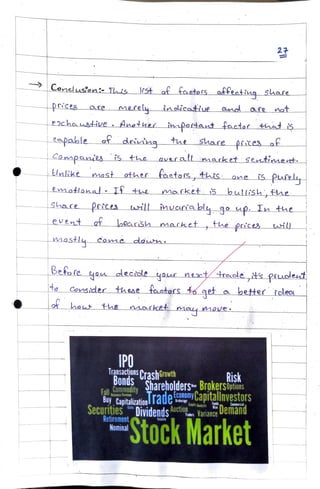 27
→ Conclusion:- This list of factors affecting share
prices are merely indicative and are not
exchaustive. Another important factor that is
capable of driving the share prices of
Companies is the overall market sentiment.
Unlike most other factors, this one is purely
emotional. If the market is bullish, the
share prices will invariably go up. In the
event of bearish market, the prices will
mostly come down.
Before you decide your next trade, it's prudent
to consider these factors to get a better idea
of how the market may move.
IPO
Transactions Crash Growth Risk
Bonds Shareholders Bear Brokers Options
Fall Commodity Trade Economy Capital Investors
Buy Capitalization
Securities Dividends Auction Variance Demand
Retirement
Nominal Stock Market